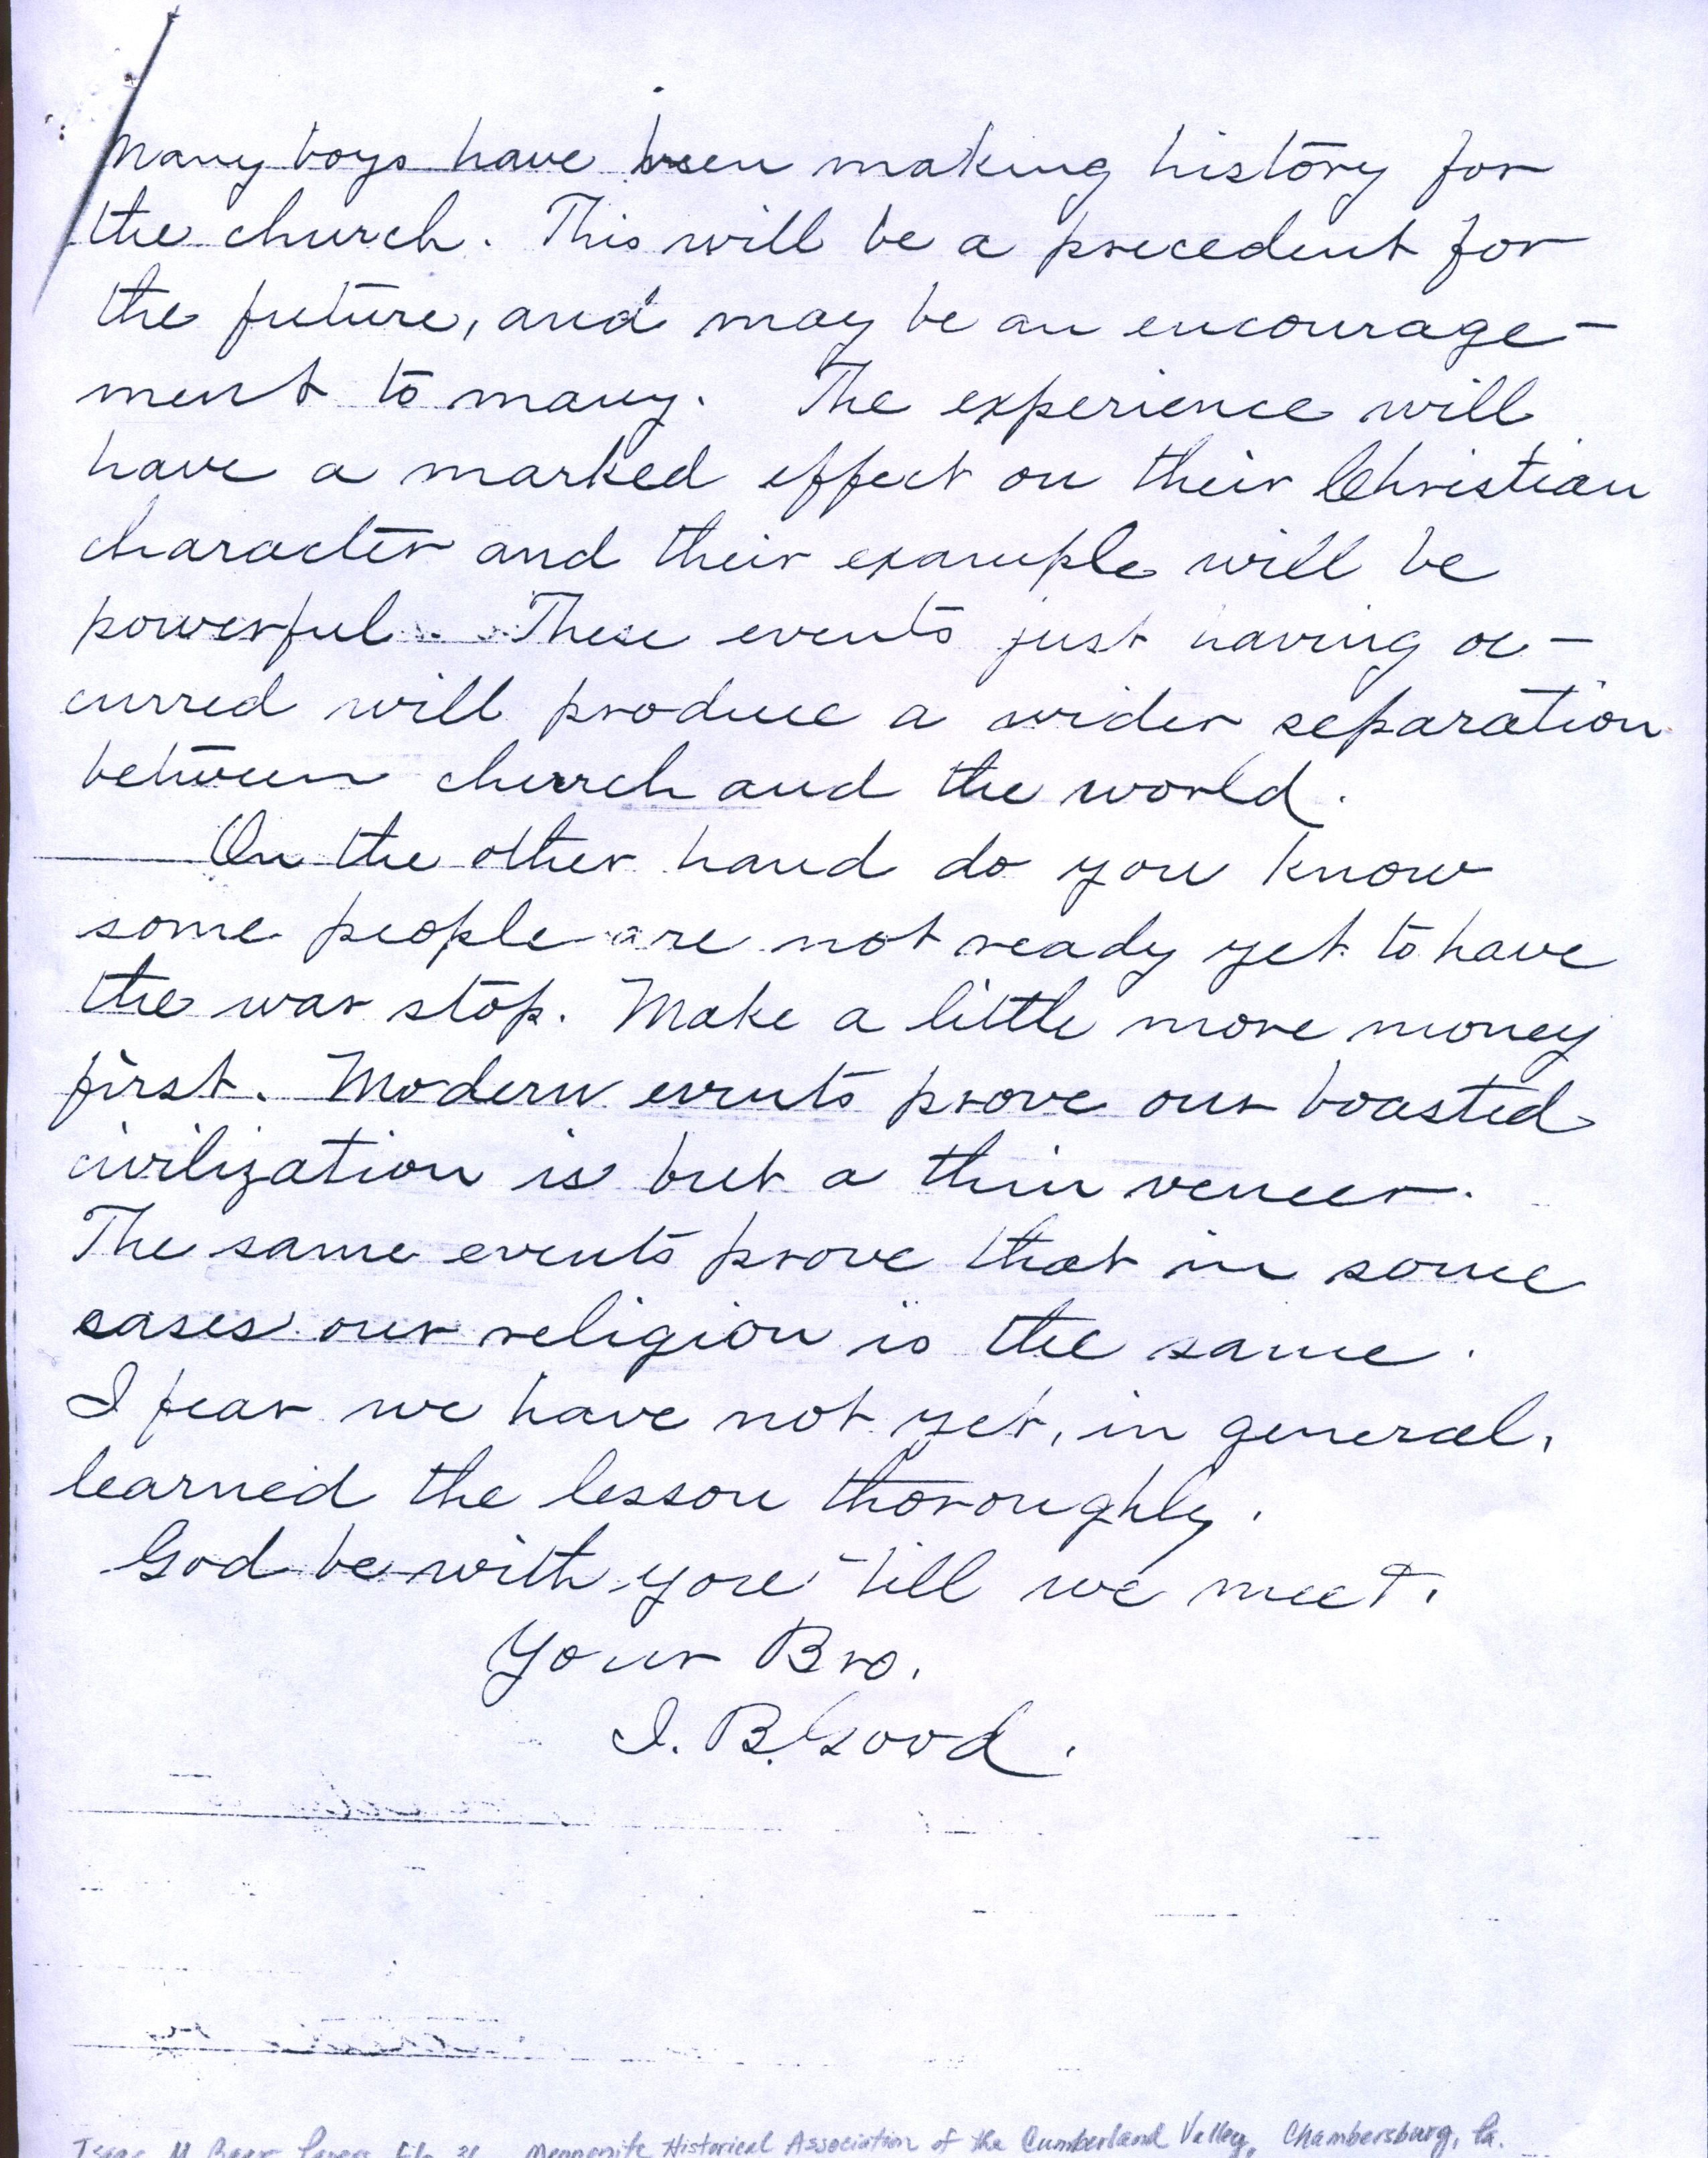 Many boys have been making history for
the church. This will be a precedent for
the future, and may be an encourage-
ment to many. The experience will
have a marked effect on their Christian
character and their example will be
powerful. These events just having oc-
curred will produce a wider separation
between church and the world.
On the other hand do you know
some people are not ready yet to have
the war stop. Make a little more money
first. Modern events prove our boasted
civilization is but a thin veneer.
The same events prove that in some
cases our religion is the same.
I fear we have not yet, in general,
learned the lesson thoroughly.
God be with you till we meet.
Your Bro.
I. B. Good.
Isaac M Baer Papers File 36 Mennonite Historical Association of the Cumberland Valley, Chambersburg, Pa.